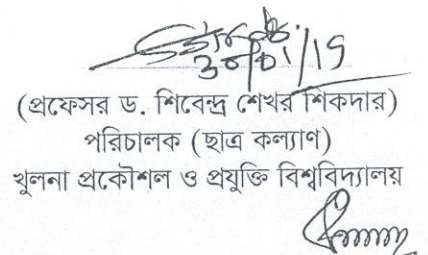 ৩০/০১/১৯
(প্রফেসর ড. শিবেন্দ্র শেখর শিকদার)
পরিচালক (ছাত্র কল্যাণ)
খুলনা প্রকৌশল ও প্রযুক্তি বিশ্ববিদ্যালয়